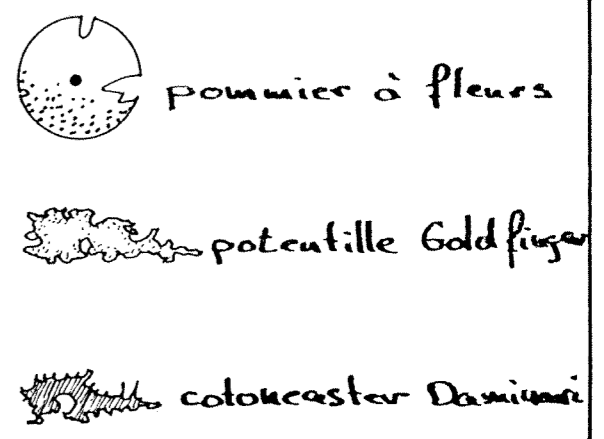 pommier à fleurs
potentille Goldfinger
cotoneaster Dammeri